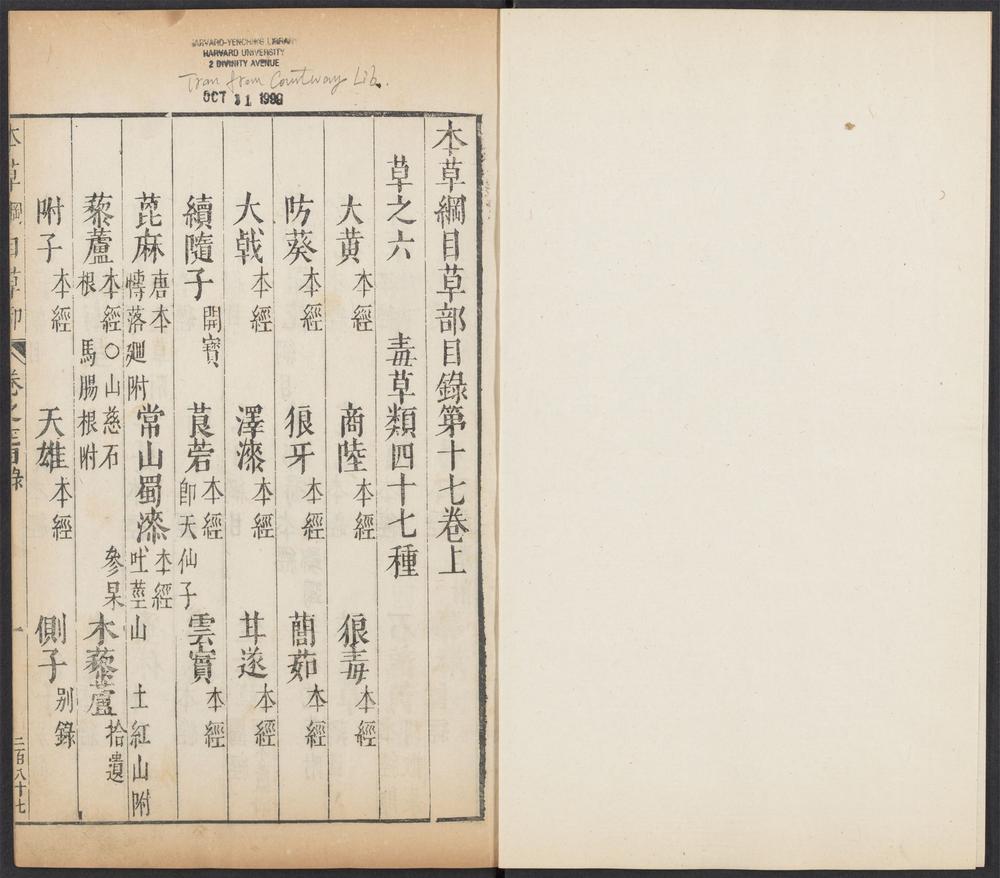 HARVARD-YENCHING LIBRARY
HARVARD UNIVERSITY
2 DIVINITY AVENUE
Tran from Countway Lib.
OCT
本草綱目草部目錄第十七卷上
草之六　毒草類四十七種
大黃 本經　商陸 本經　狼毒 本經
防葵 本經　狼牙 本經　䕡茹 本經
大戟 本經　澤漆 本經　甘遂 本經
續隨子 開寶　莨菪 本經 卽天仙子　雲實 本經
蓖麻 唐本 慱落廻附　常山蜀漆 本經 吐莖山 土紅山附
藜蘆 本經○山慈石 參果根 馬腸根附　木藜蘆 拾遺
附子 本經　天雄 本經　側子 別錄
本草綱目草部 卷之 目錄 一 二百八十七